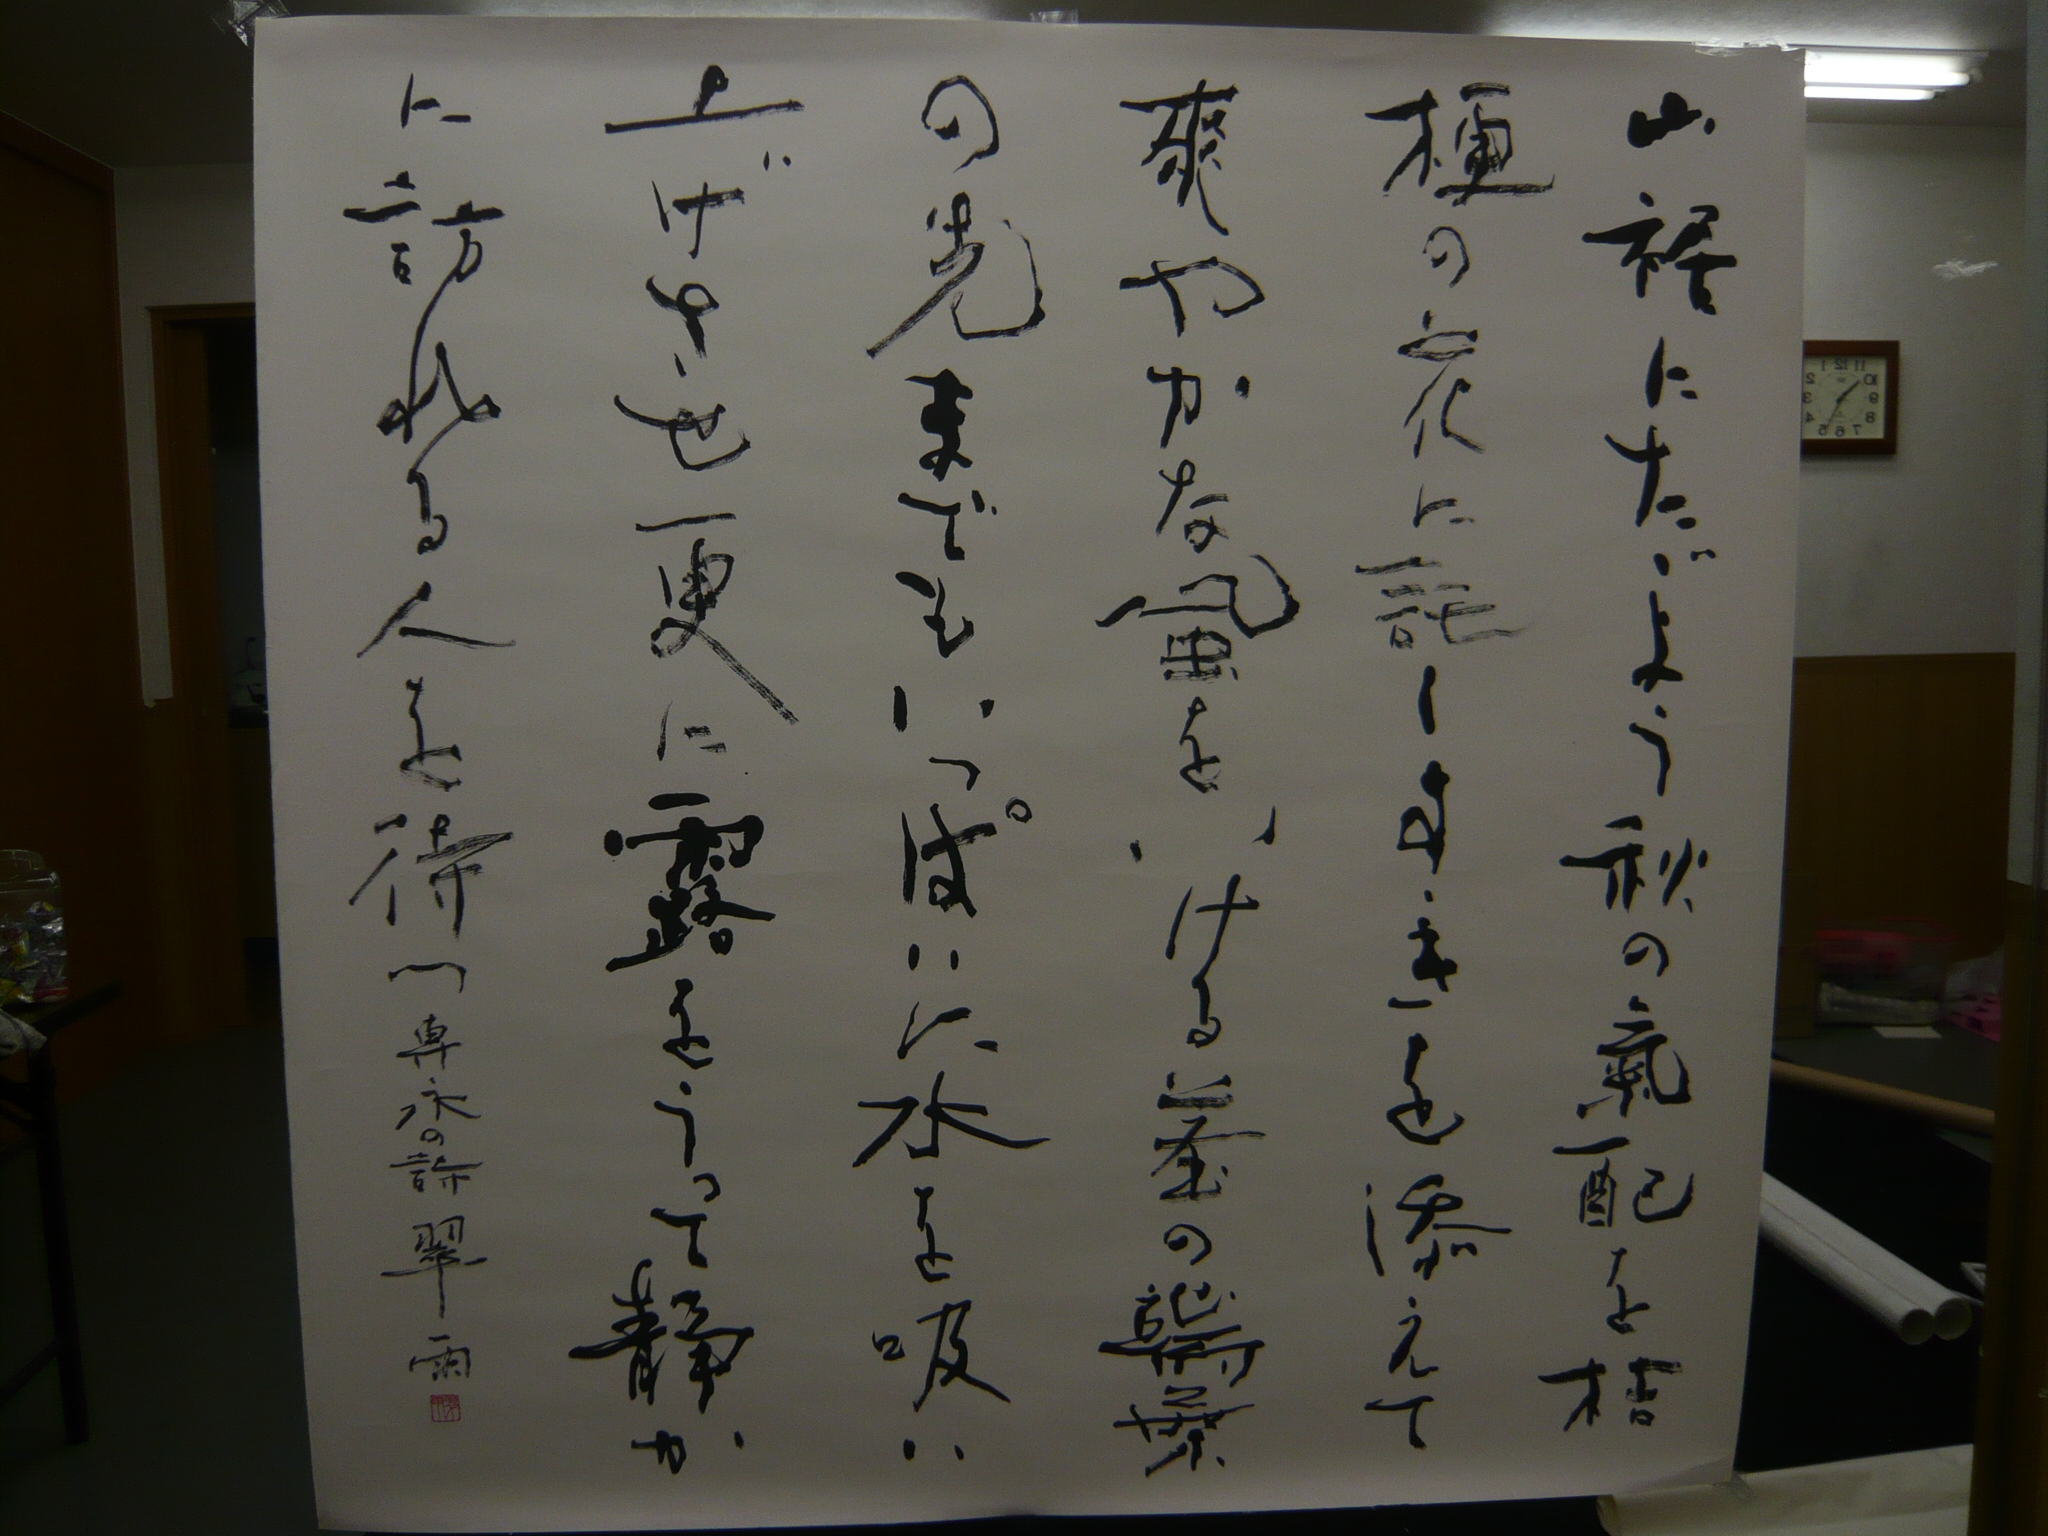 山裾にたゞよう秋の氣配を桔
梗の花に託しすゝきを添えて
爽やかな風をいける莖の葉
の先までもいっぱいに水を吸い
上げさせ更に露をうって静か
に訪れる人を待つ 専永の詩 翠雨